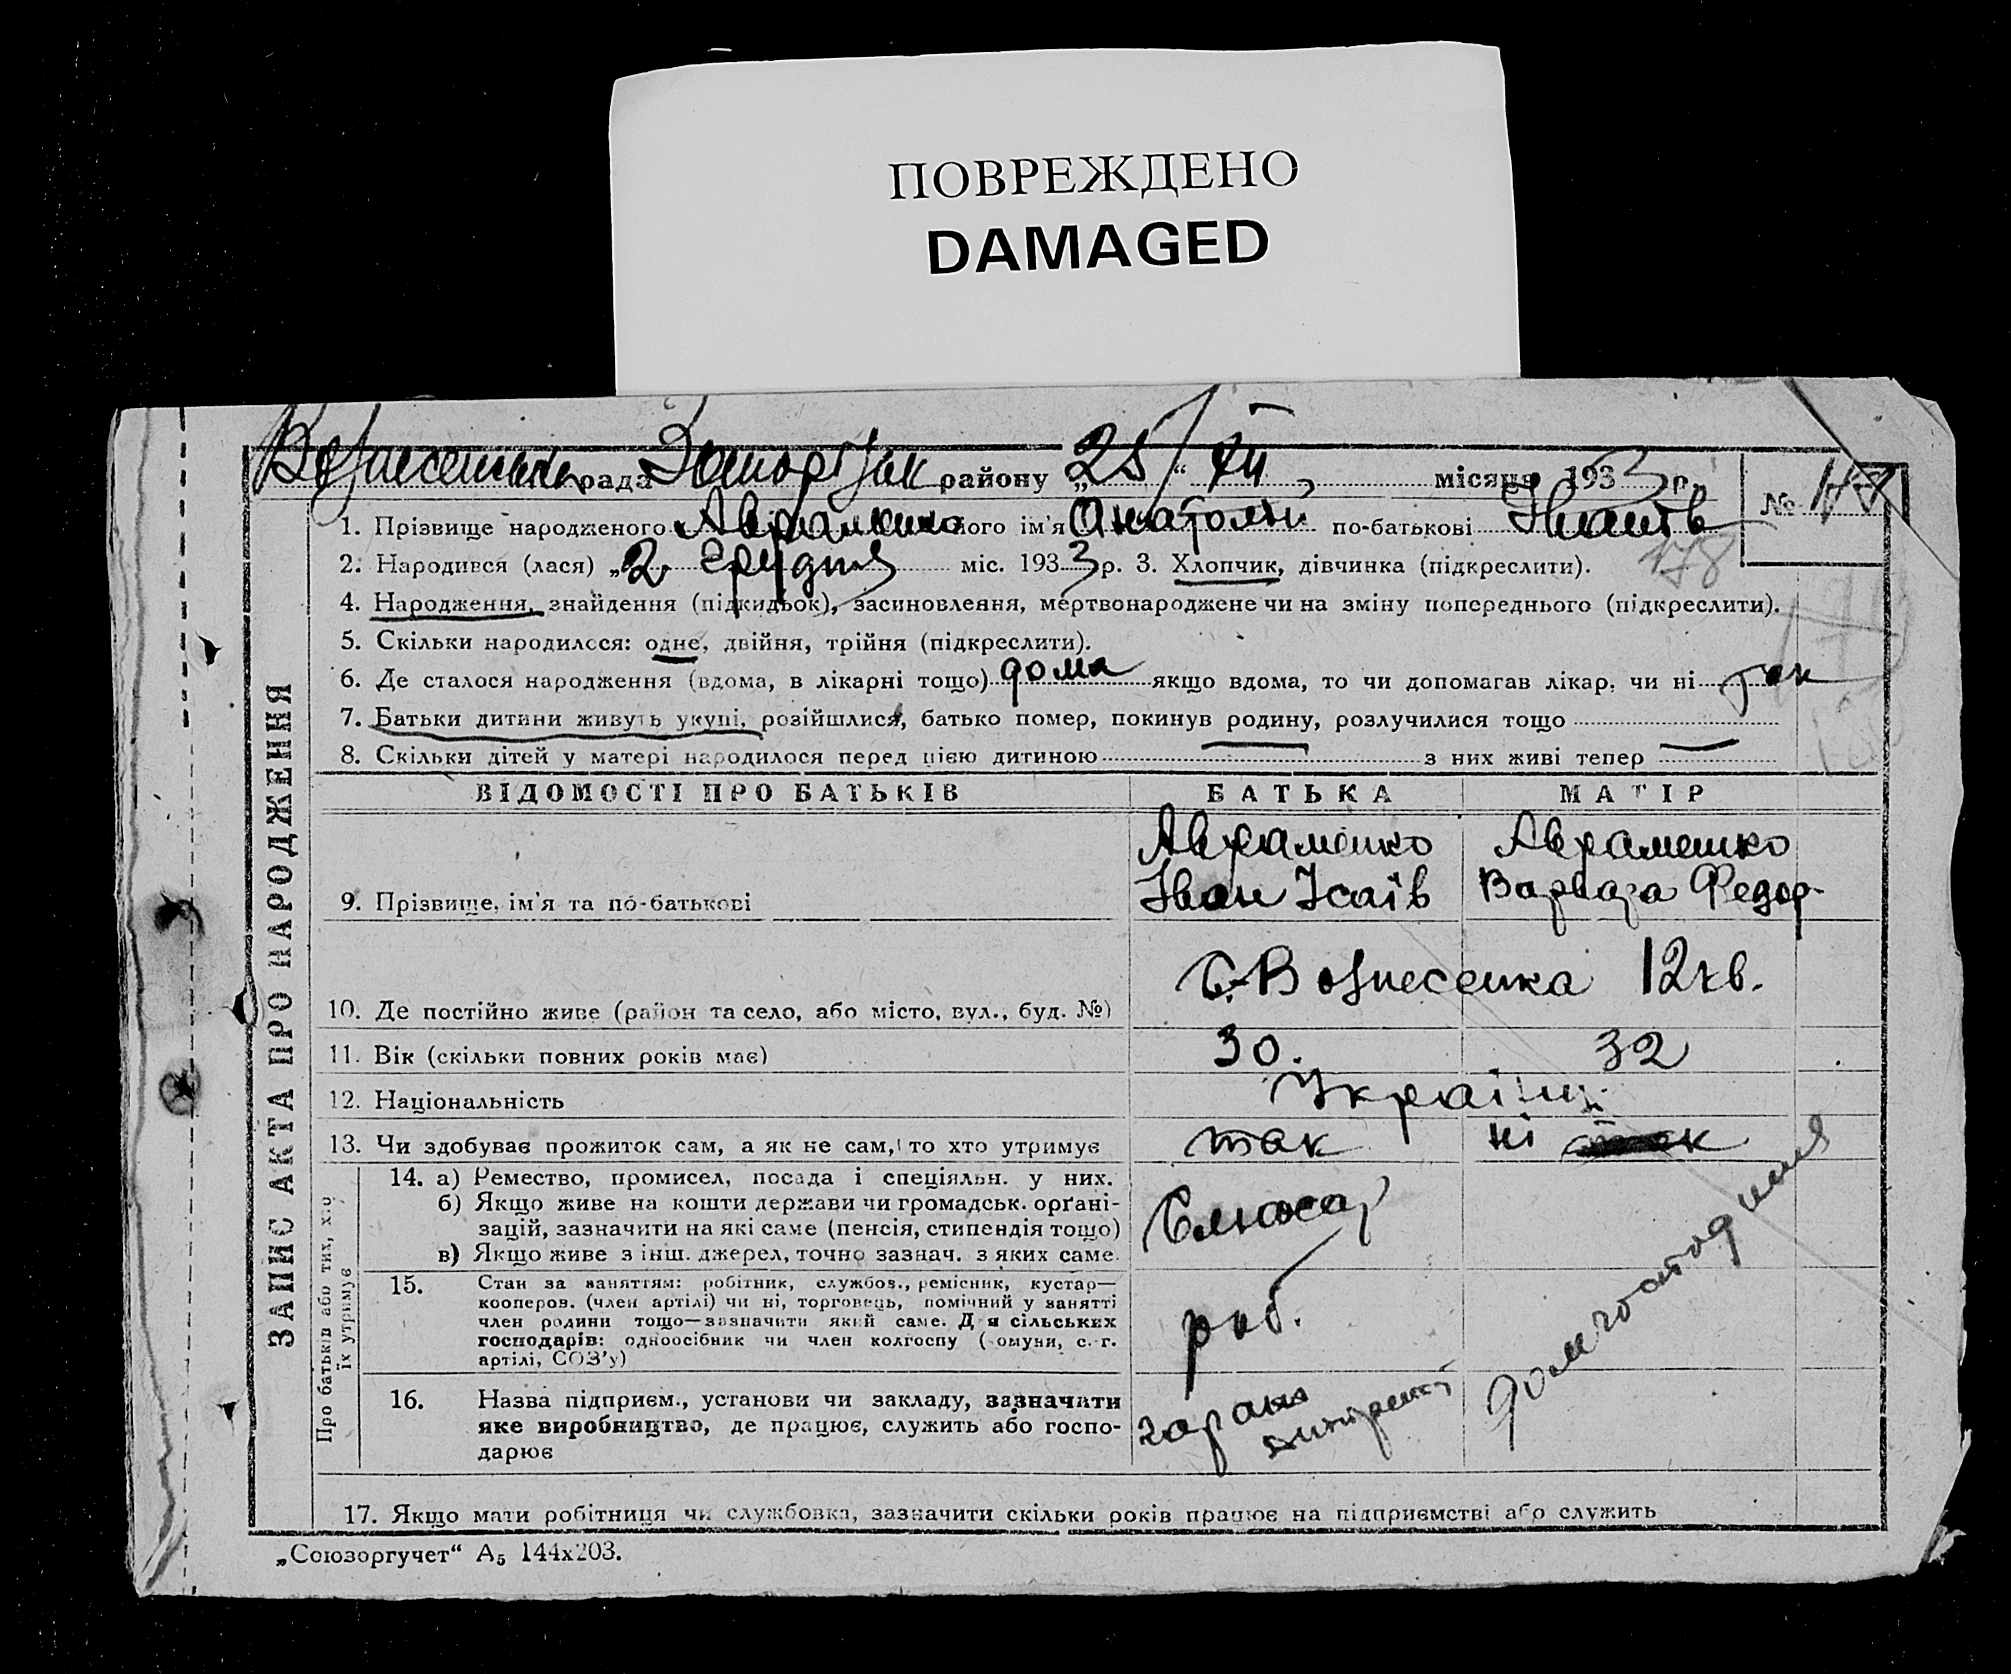 ПОВРЕЖДЕНО
DAMAGED
рада Запоріжж району „25“ XII місяця 1933 р.
№ 177
1. Прізвище народженого Авраменко його ім'я Анатолій по-батькові Іванів
178
2. Народився (лася) „2 Грудня міс. 1933 р. 3. Хлопчик, дівчинка (підкреслити).
4. Народження, знайдення (підкидьок), засиновлення, мертвонароджене чи на зміну попереднього (підкреслити).
5. Скільки народилося: одне, двійня, трійня (підкреслити).
6. Де сталося народження (вдома, в лікарні тощо) дома якщо вдома, то чи допомагав лікар, чи ні так
7. Батьки дитини живуть укупі, розійшлися, батько помер, покинув родину, розлучилися тощо
8. Скільки дітей у матері народилося перед цією дитиною — з них живі тепер —
ЗАПИС АКТА ПРО НАРОДЖЕННЯ
ВІДОМОСТІ ПРО БАТЬКІВ БАТЬКА МАТІР
9. Прізвище, ім'я та по-батькові
Авраменко Іван Ісаїв
Авраменко Варвара Федор-
10. Де постійно живе (район та село, або місто, вул., буд. №) С-Вознесенка 12 кв.
11. Вік (скільки повних років має) 30. 32
12. Національність Україн.
13. Чи здобуває прожиток сам, а як не сам, то хто утримує так ні
Про батьків або тих, хто їх утримує
14. а) Ремество, промисел, посада і спеціяльн. у них.
б) Якщо живе на кошти держави чи громадськ. орґані-
зацій, зазначити на які саме (пенсія, стипендія тощо)
в) Якщо живе з інш. джерел, точно зазнач. з яких саме.
Слюсар
15. Стан за заняттям: робітник, службов., ремісник, кустар—
кооперов. (член артілі) чи ні, торговець, помічний у занятті
член родини тощо—зазначити який саме. Для сільських
господарів: одноосібник чи член колгоспу (комуни, с.-г.
артілі, СОЗ'у)
роб.
16. Назва підприєм., установи чи закладу, зазначити
яке виробництво, де працює, служить або госпо-
дарює
гараж
домгосподиня
17. Якщо мати робітниця чи службовка, зазначити скільки років працює на підприємстві або служить
„Союзоргучет“ А5 144х203.